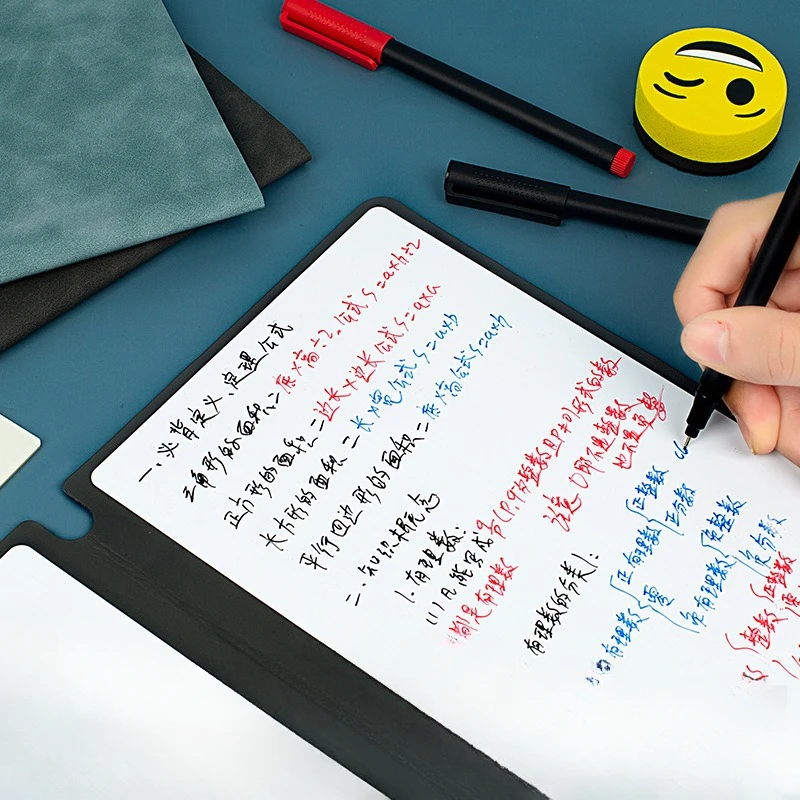 一、必背定义、定理公式
三角形的面积=底×高÷2.公式 S=a×h÷2
正方形的面积=边长×边长 公式 S=a×a
长方形的面积=长×宽 公式 S=a×b
平行四边形的面积=底×高 公式 S=a×h
二、知识概念
1.有理数:
(1)凡能写成 (p,q为整数且p≠0)形式的数
都是有理数
注意 0即不是整数
也不是负数
有理数的分类1:
有理数 正有理数 正整数
正分数
零
负有理数 负整数
负分数
整数 正整数
零